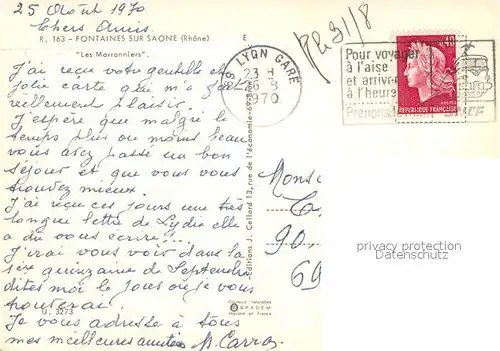 25 Août 1970
Chers Amis
R. 163 - FONTAINES SUR SAONE (Rhône)
"Les Marronniers".
E
J'ai reçu votre gentille et
jolie carte qui m'a fait
réellement plaisir.
J'espère que malgré le
temps plus ou moins beau
vous avez passé un bon
séjour et que vous vous
trouvez mieux.
J'ai reçu ces jours une très
longue lettre de Lydie elle
a dû vous écrire!...
J'irai vous voir dans la
1ère quinzaine de Septembre
dites moi le jour où je vous
trouverai.
U. 3273
Je vous adresse à tous
mes meilleures amitiés M. Carron
Editions J. Cellard 13, rue de l'économie
Couleurs naturelles
S.P.A.D.E.M.
Imprimé en France
LYON GARE
23 H
26-8
1970
Ré 31/8
Pour voyager
à l'aise
et arriver
à l'heure
Prenons
SNCF
0,40
REPUBLIQUE FRANÇAISE
POSTES
Mons
90
69
privacy protection
Datenschutz